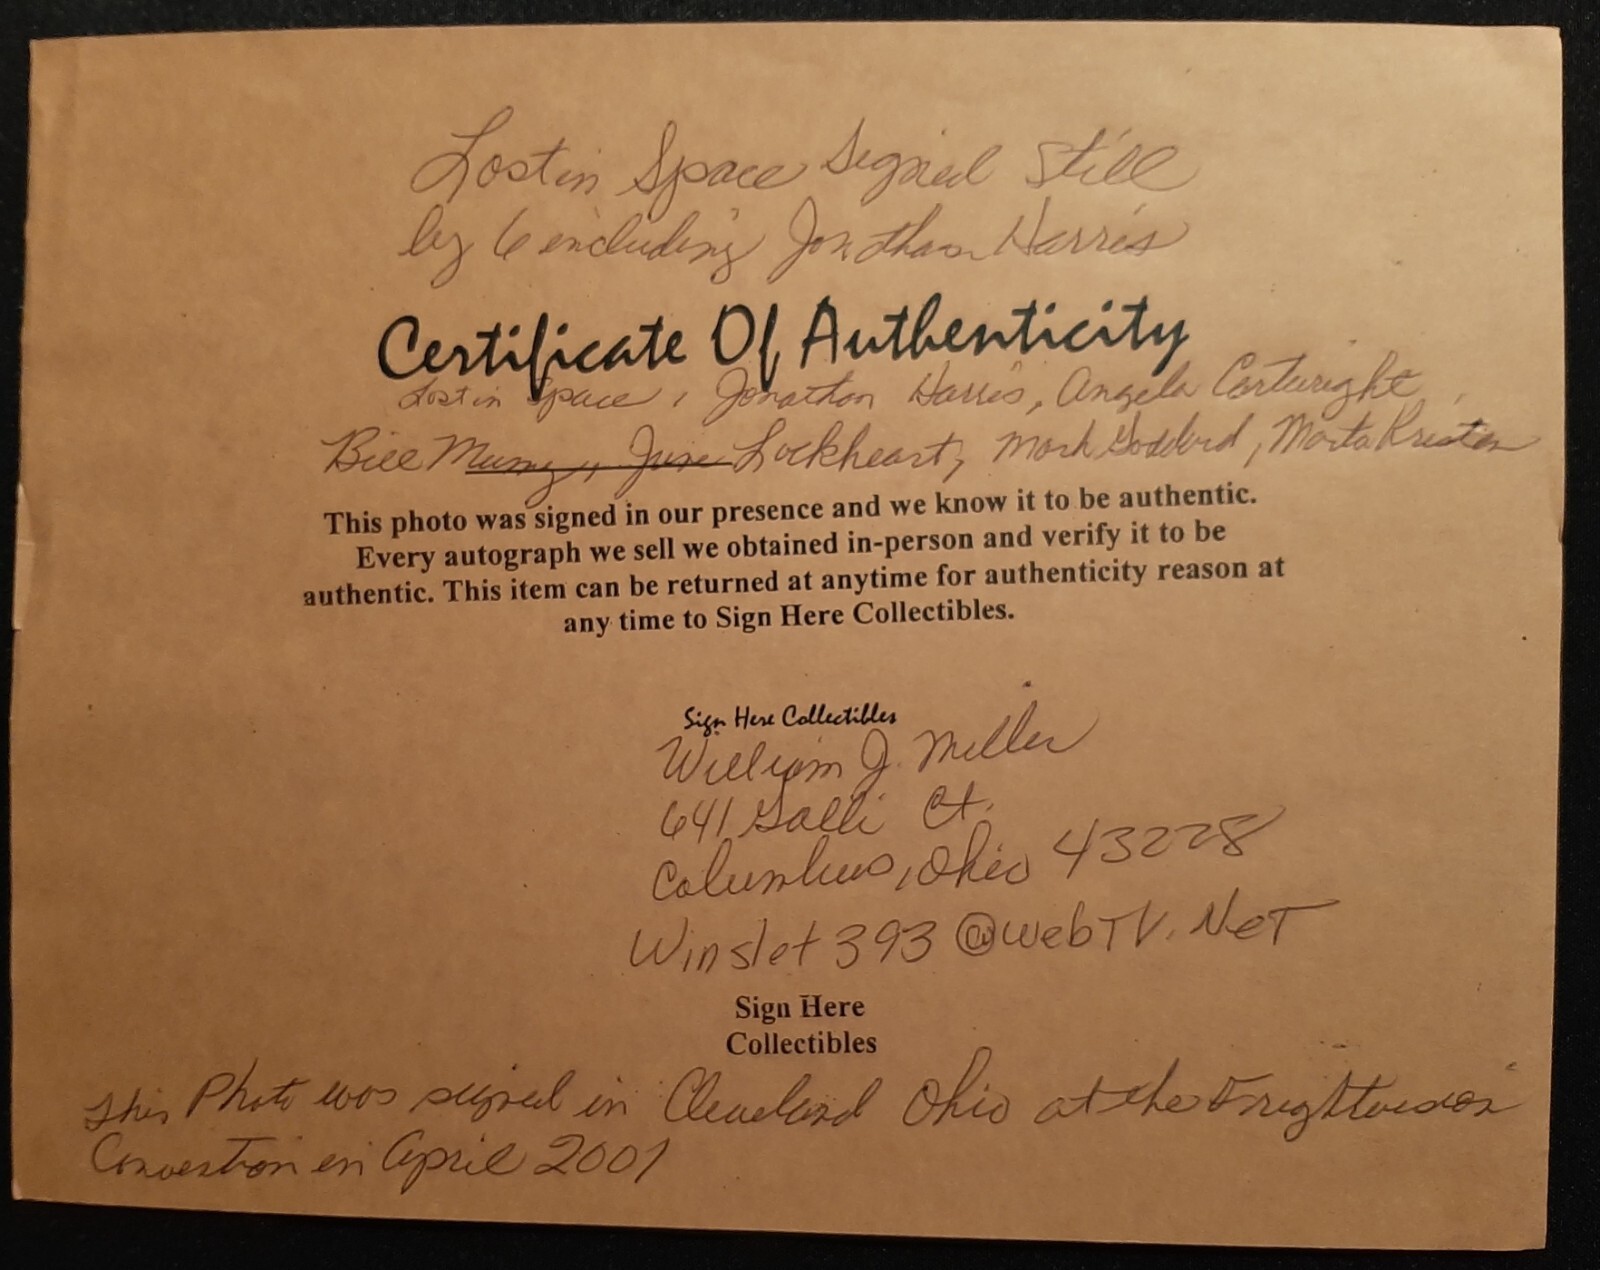 Lost in Space Signed Still
by 6 including Jonathan Harris
Certificate Of Authenticity
Lost in Space, Jonathan Harris, Angela Cartwright,
Bill Mumy, June Lockheart, Mark Goddard, Marta Kristen
This photo was signed in our presence and we know it to be authentic.
Every autograph we sell we obtained in-person and verify it to be
authentic. This item can be returned at anytime for authenticity reason at
any time to Sign Here Collectibles.
Sign Here Collectibles
William J. Miller
641 Galli Ct.
Columbus, Ohio 43228
Winslet393@webTV.NeT
Sign Here
Collectibles
This Photo was signed in Cleveland Ohio at the Frightvision
Convention in April 2001